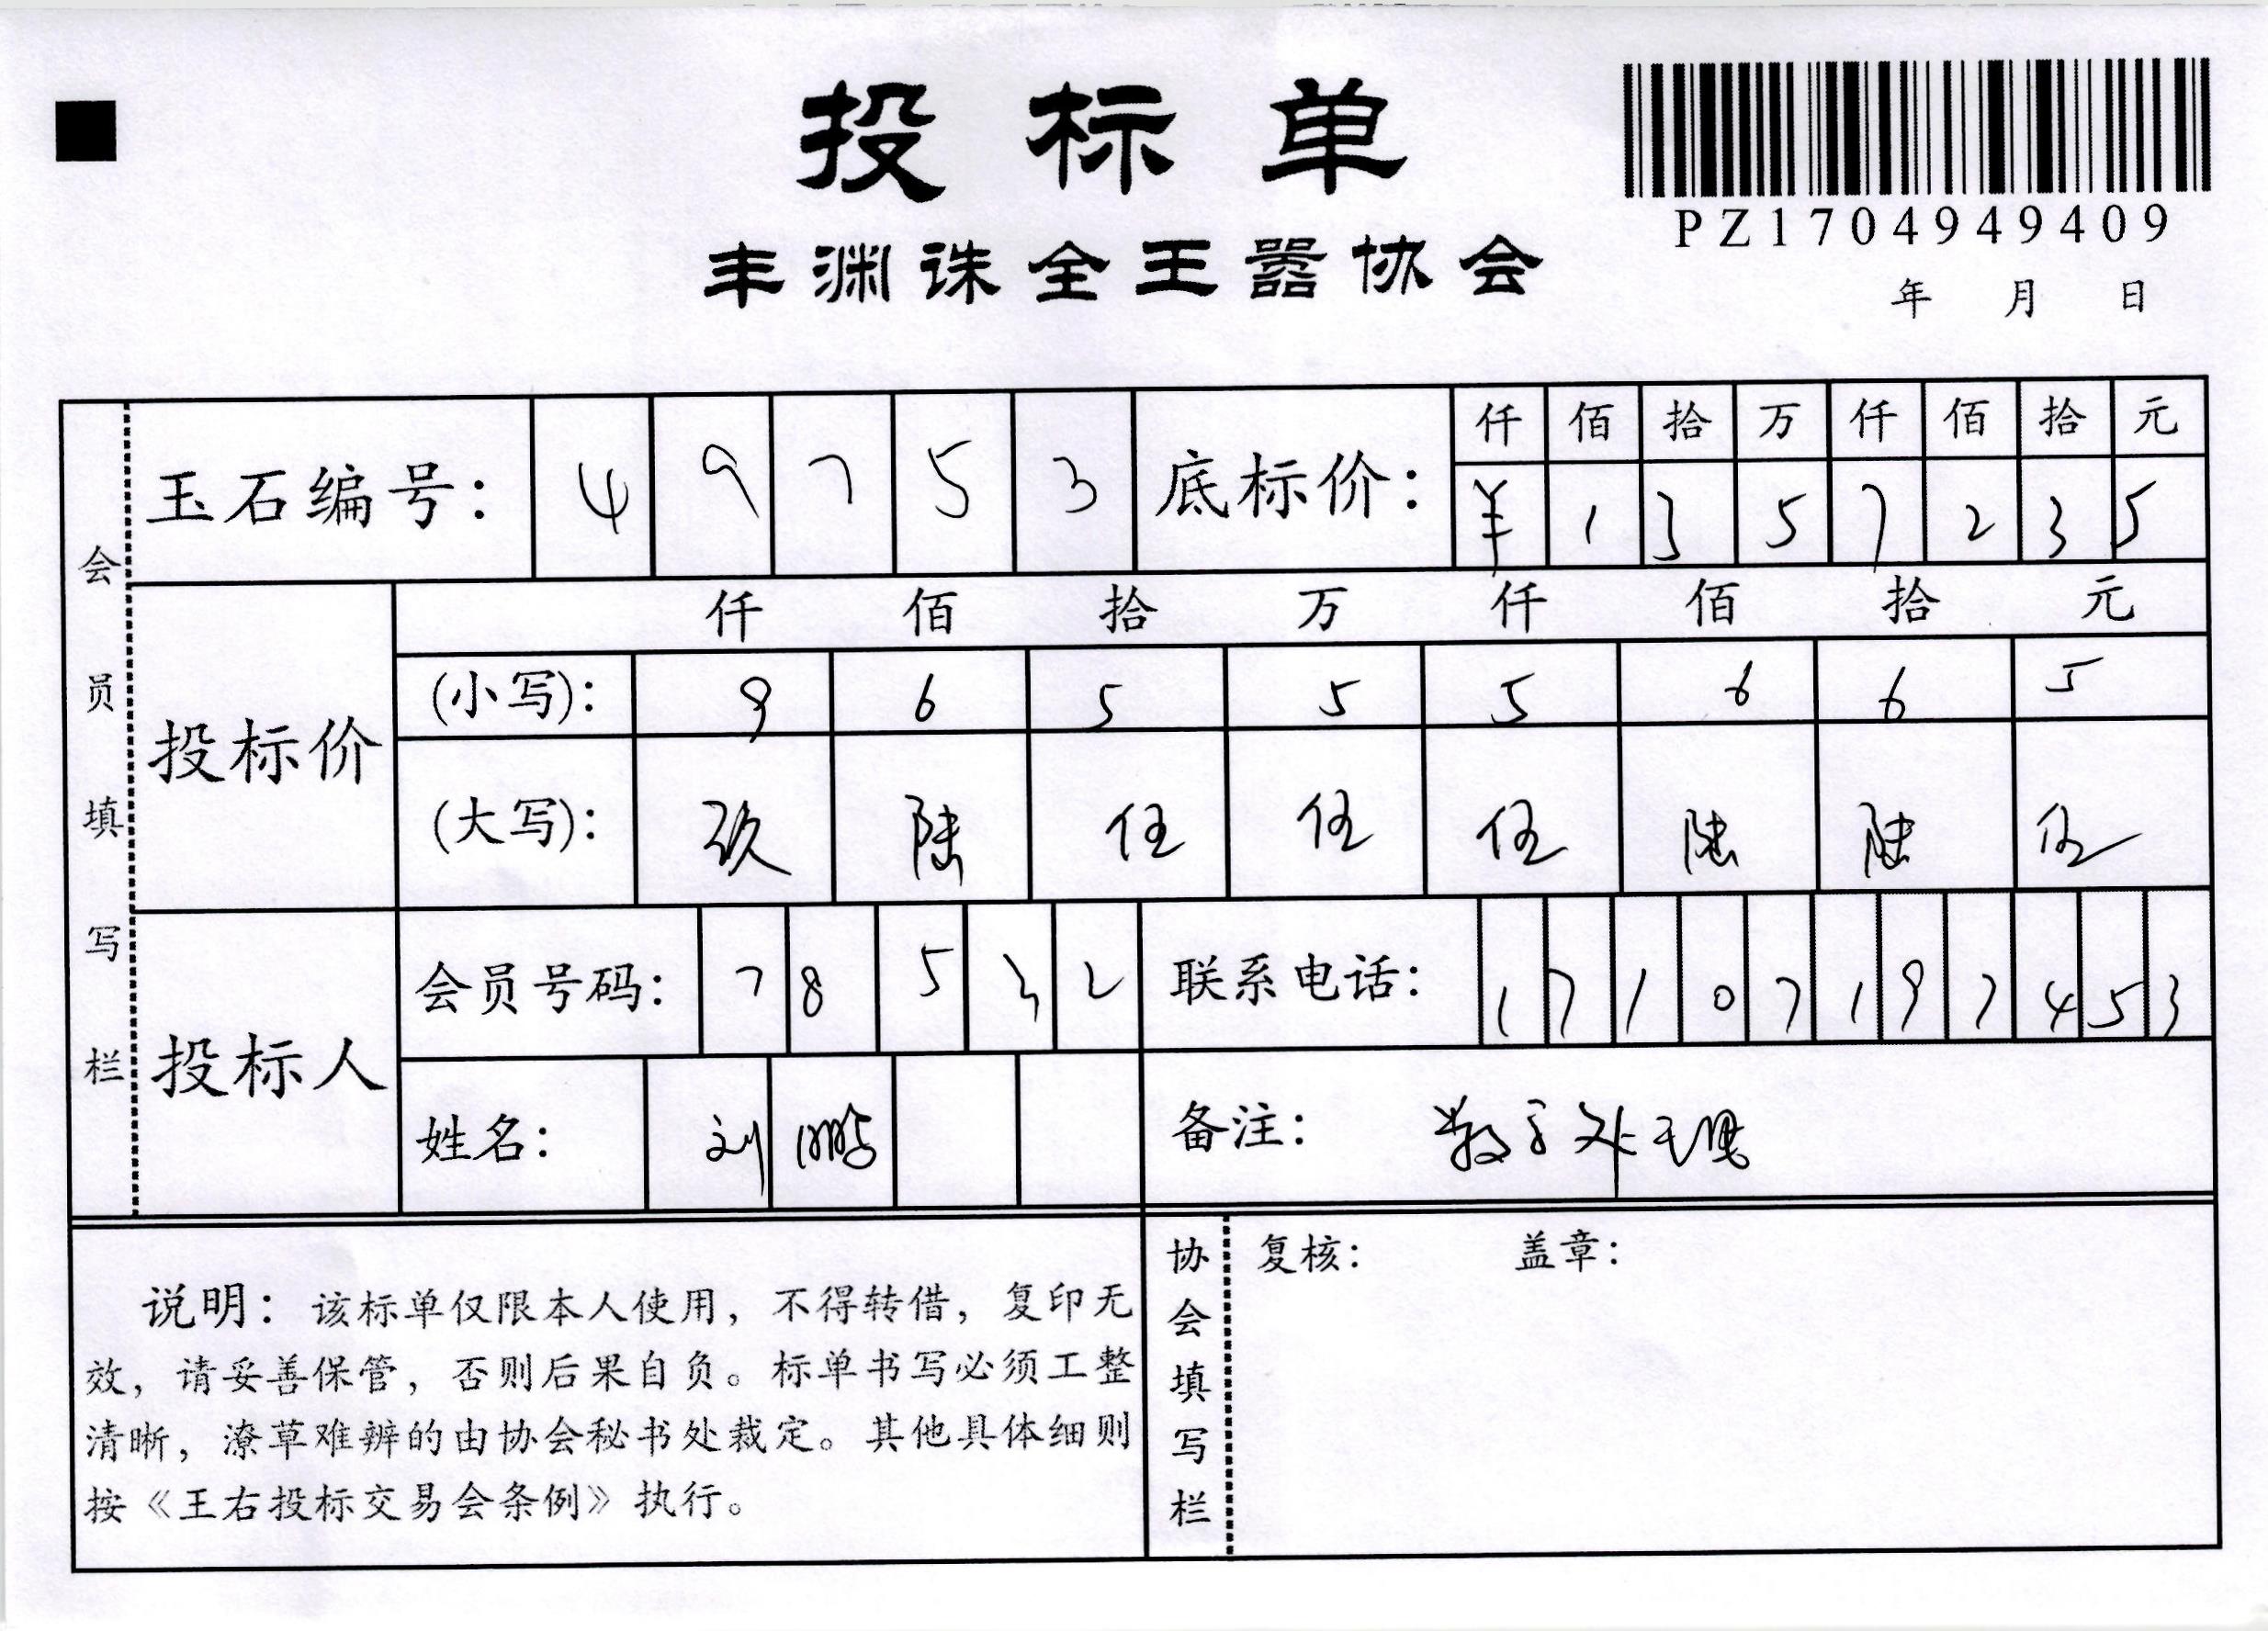 投标单
PZ1704949409
丰渊诛全王嚣协会
年 月 日
会员填写栏
玉石编号： 4 9 7 5 3
底标价： 仟 佰 拾 万 仟 佰 拾 元
¥ 1 3 5 7 2 3 5
投标价
仟 佰 拾 万 仟 佰 拾 元
(小写)： 9 6 5 5 5 6 6 5
(大写)： 玖 陆 伍 伍 伍 陆 陆 伍
投标人
会员号码： 7 8 5 3 2
联系电话： 1 7 1 0 7 1 9 7 4 5 3
姓名： 刘 鹏
备注： 数字处理
说明：该标单仅限本人使用，不得转借，复印无
效，请妥善保管，否则后果自负。标单书写必须工整
清晰，潦草难辨的由协会秘书处裁定。其他具体细则
按《王右投标交易会条例》执行。
协会填写栏
复核： 盖章：